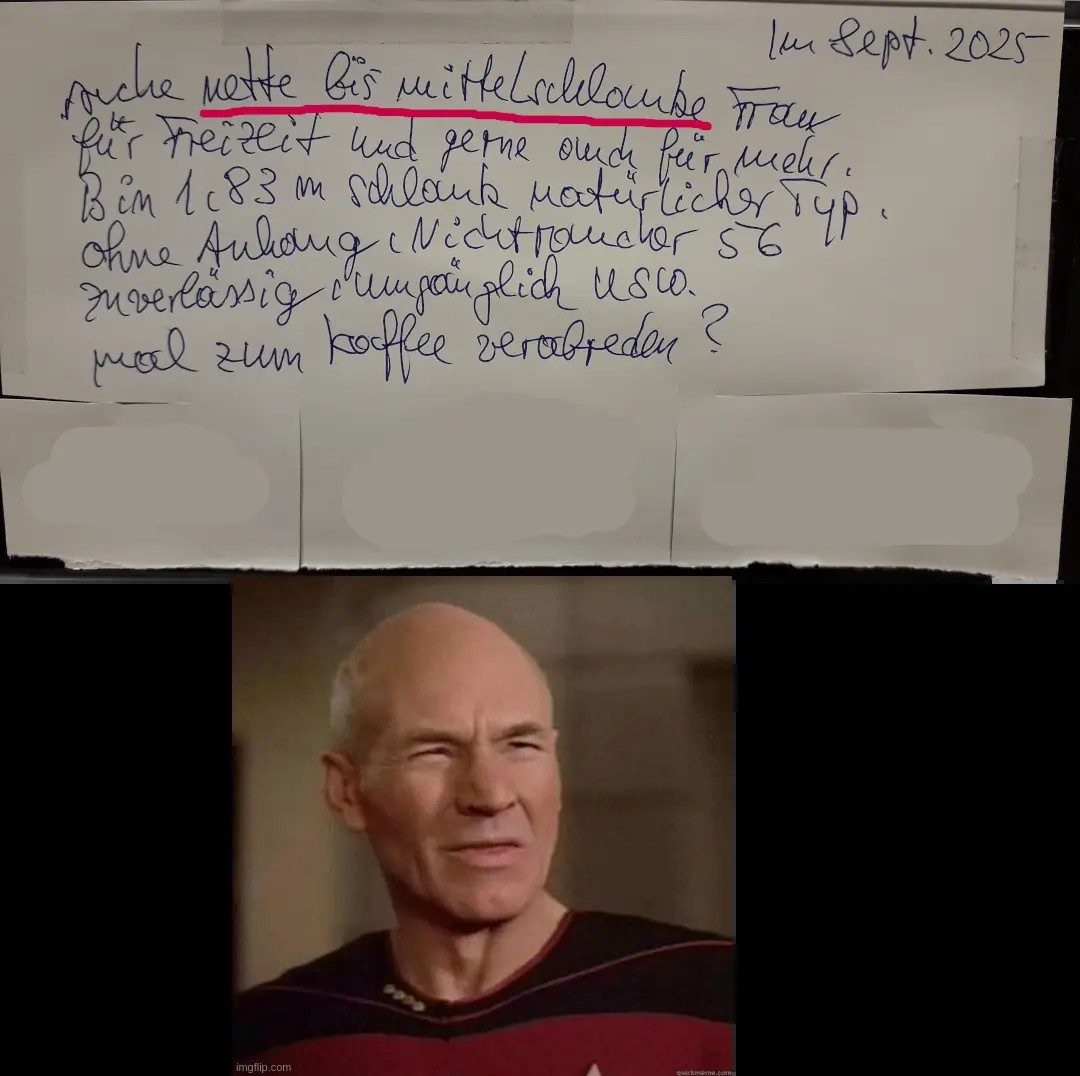 Im Sept. 2025
suche nette bis mittelschlanke Frau
für Freizeit und gerne auch für mehr.
Bin 1,83 m schlank natürlicher Typ.
ohne Anhang, Nichtraucher 56
zuverlässig, umgänglich usw.
mal zum kaffee verabreden?
imgflip.com
quickmeme.com